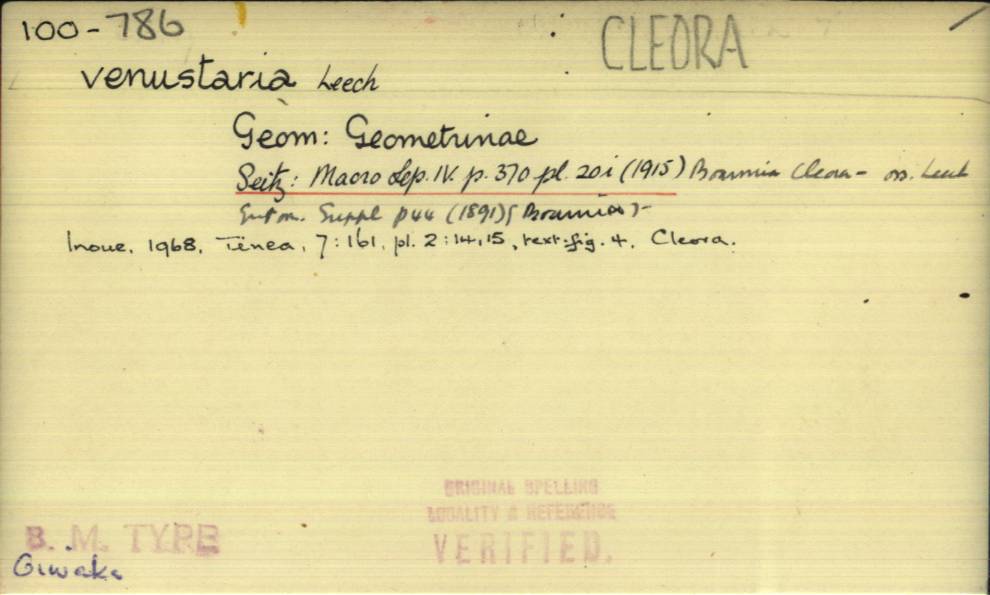 100-786
CLEORA
venustaria Leech
Geom: Geometrinae
Seitz: Macro Lep. IV. p. 370 pl. 20i (1915) Boarmia Cleora - Leech
Entom. Suppl p44 (1891) (Boarmia) -
Inoue, 1968, Tinea, 7:161, pl. 2:14,15, text-fig. 4. Cleora.
ORIGINAL SPELLING
LOCALITY & REFERENCE
VERIFIED.
B. M. TYPE
Oiwake